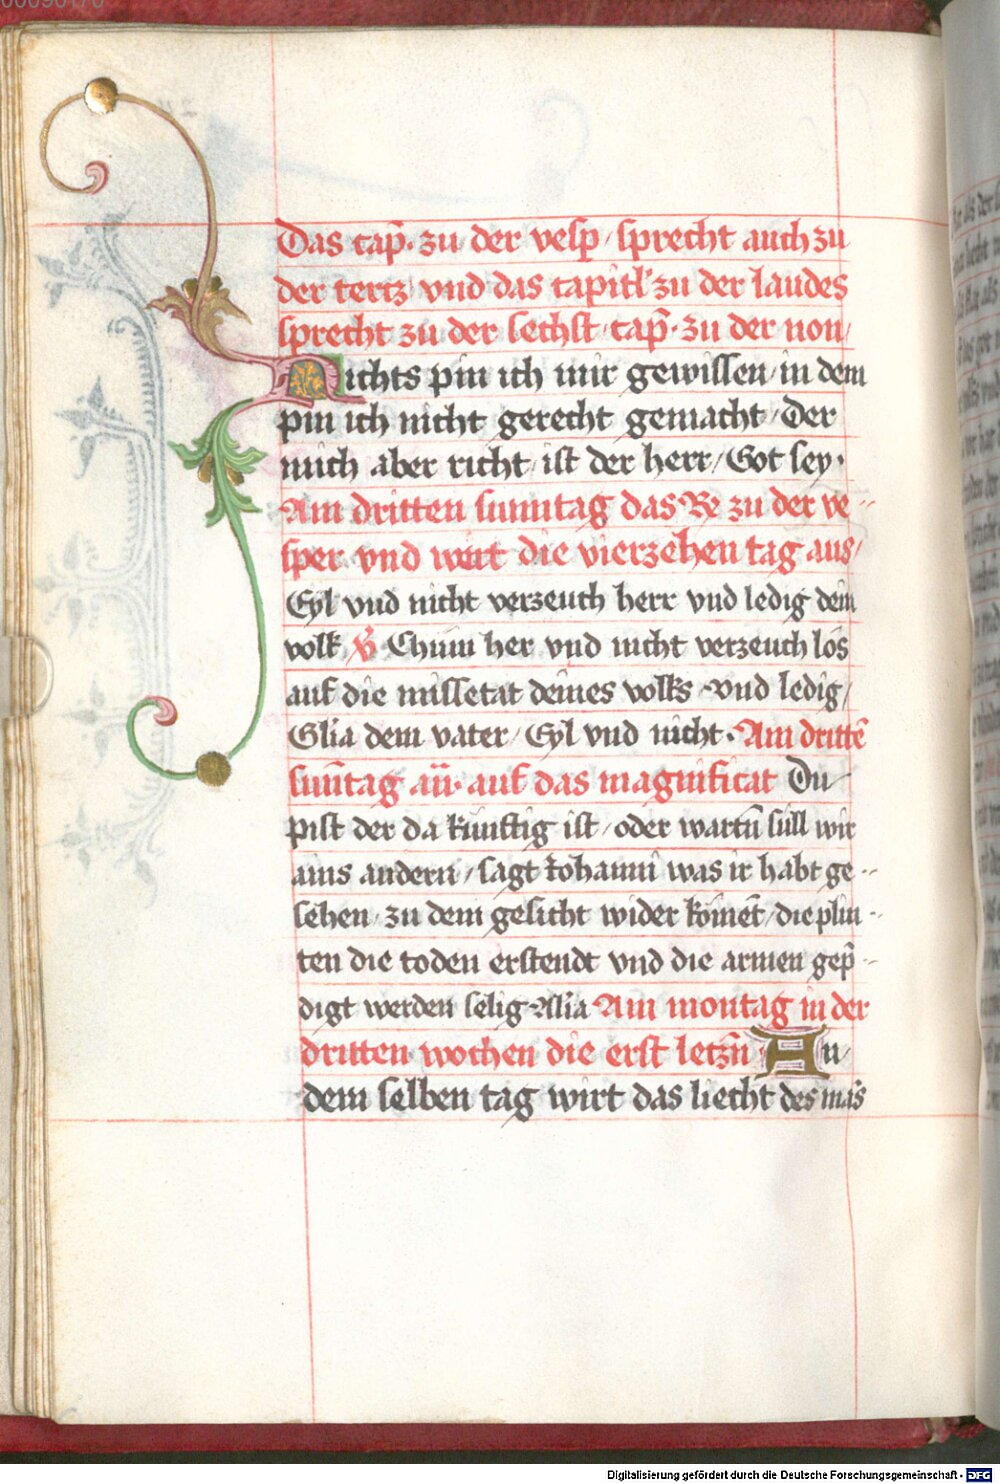 Das cap̃. zu der vesp / sprecht auch zu
der tertz vnd das capitl' zu der laudes
sprecht zu der sechst / cap̃. zu der non /
Nichts pin ich mir gewissen / in dem
pin ich nicht gerecht gemacht / Der
mich aber richt / ist der herr / Got sey.
Am dritten sunntag das Re zu der ve-
sper vnd wert die vierzehen tag aus /
Eyl vnd nicht verzeuch herr vnd ledig dein
volk ℣ Chum her vnd nicht verzeuch lös
auf die missetat deines volks / vnd ledig /
Gl̃ia dem vater / Eyl vnd nicht. Am drittē
sun̄tag an̄. auf das magnificat Du
pist der da künftig ist / oder wartn̄ süll wir
ains andern / sagt Johanni was ir habt ge-
sehen / zu dem gesicht wider kömet / die plin-
ten die toden erstendt vnd die armen gep̄-
digt werden selig Al̃ia Am montag in der
dritten wochen die erst letzn̄ An
dem selben tag wirt das liecht des mās
Digitalisierung gefördert durch die Deutsche Forschungsgemeinschaft - DFG